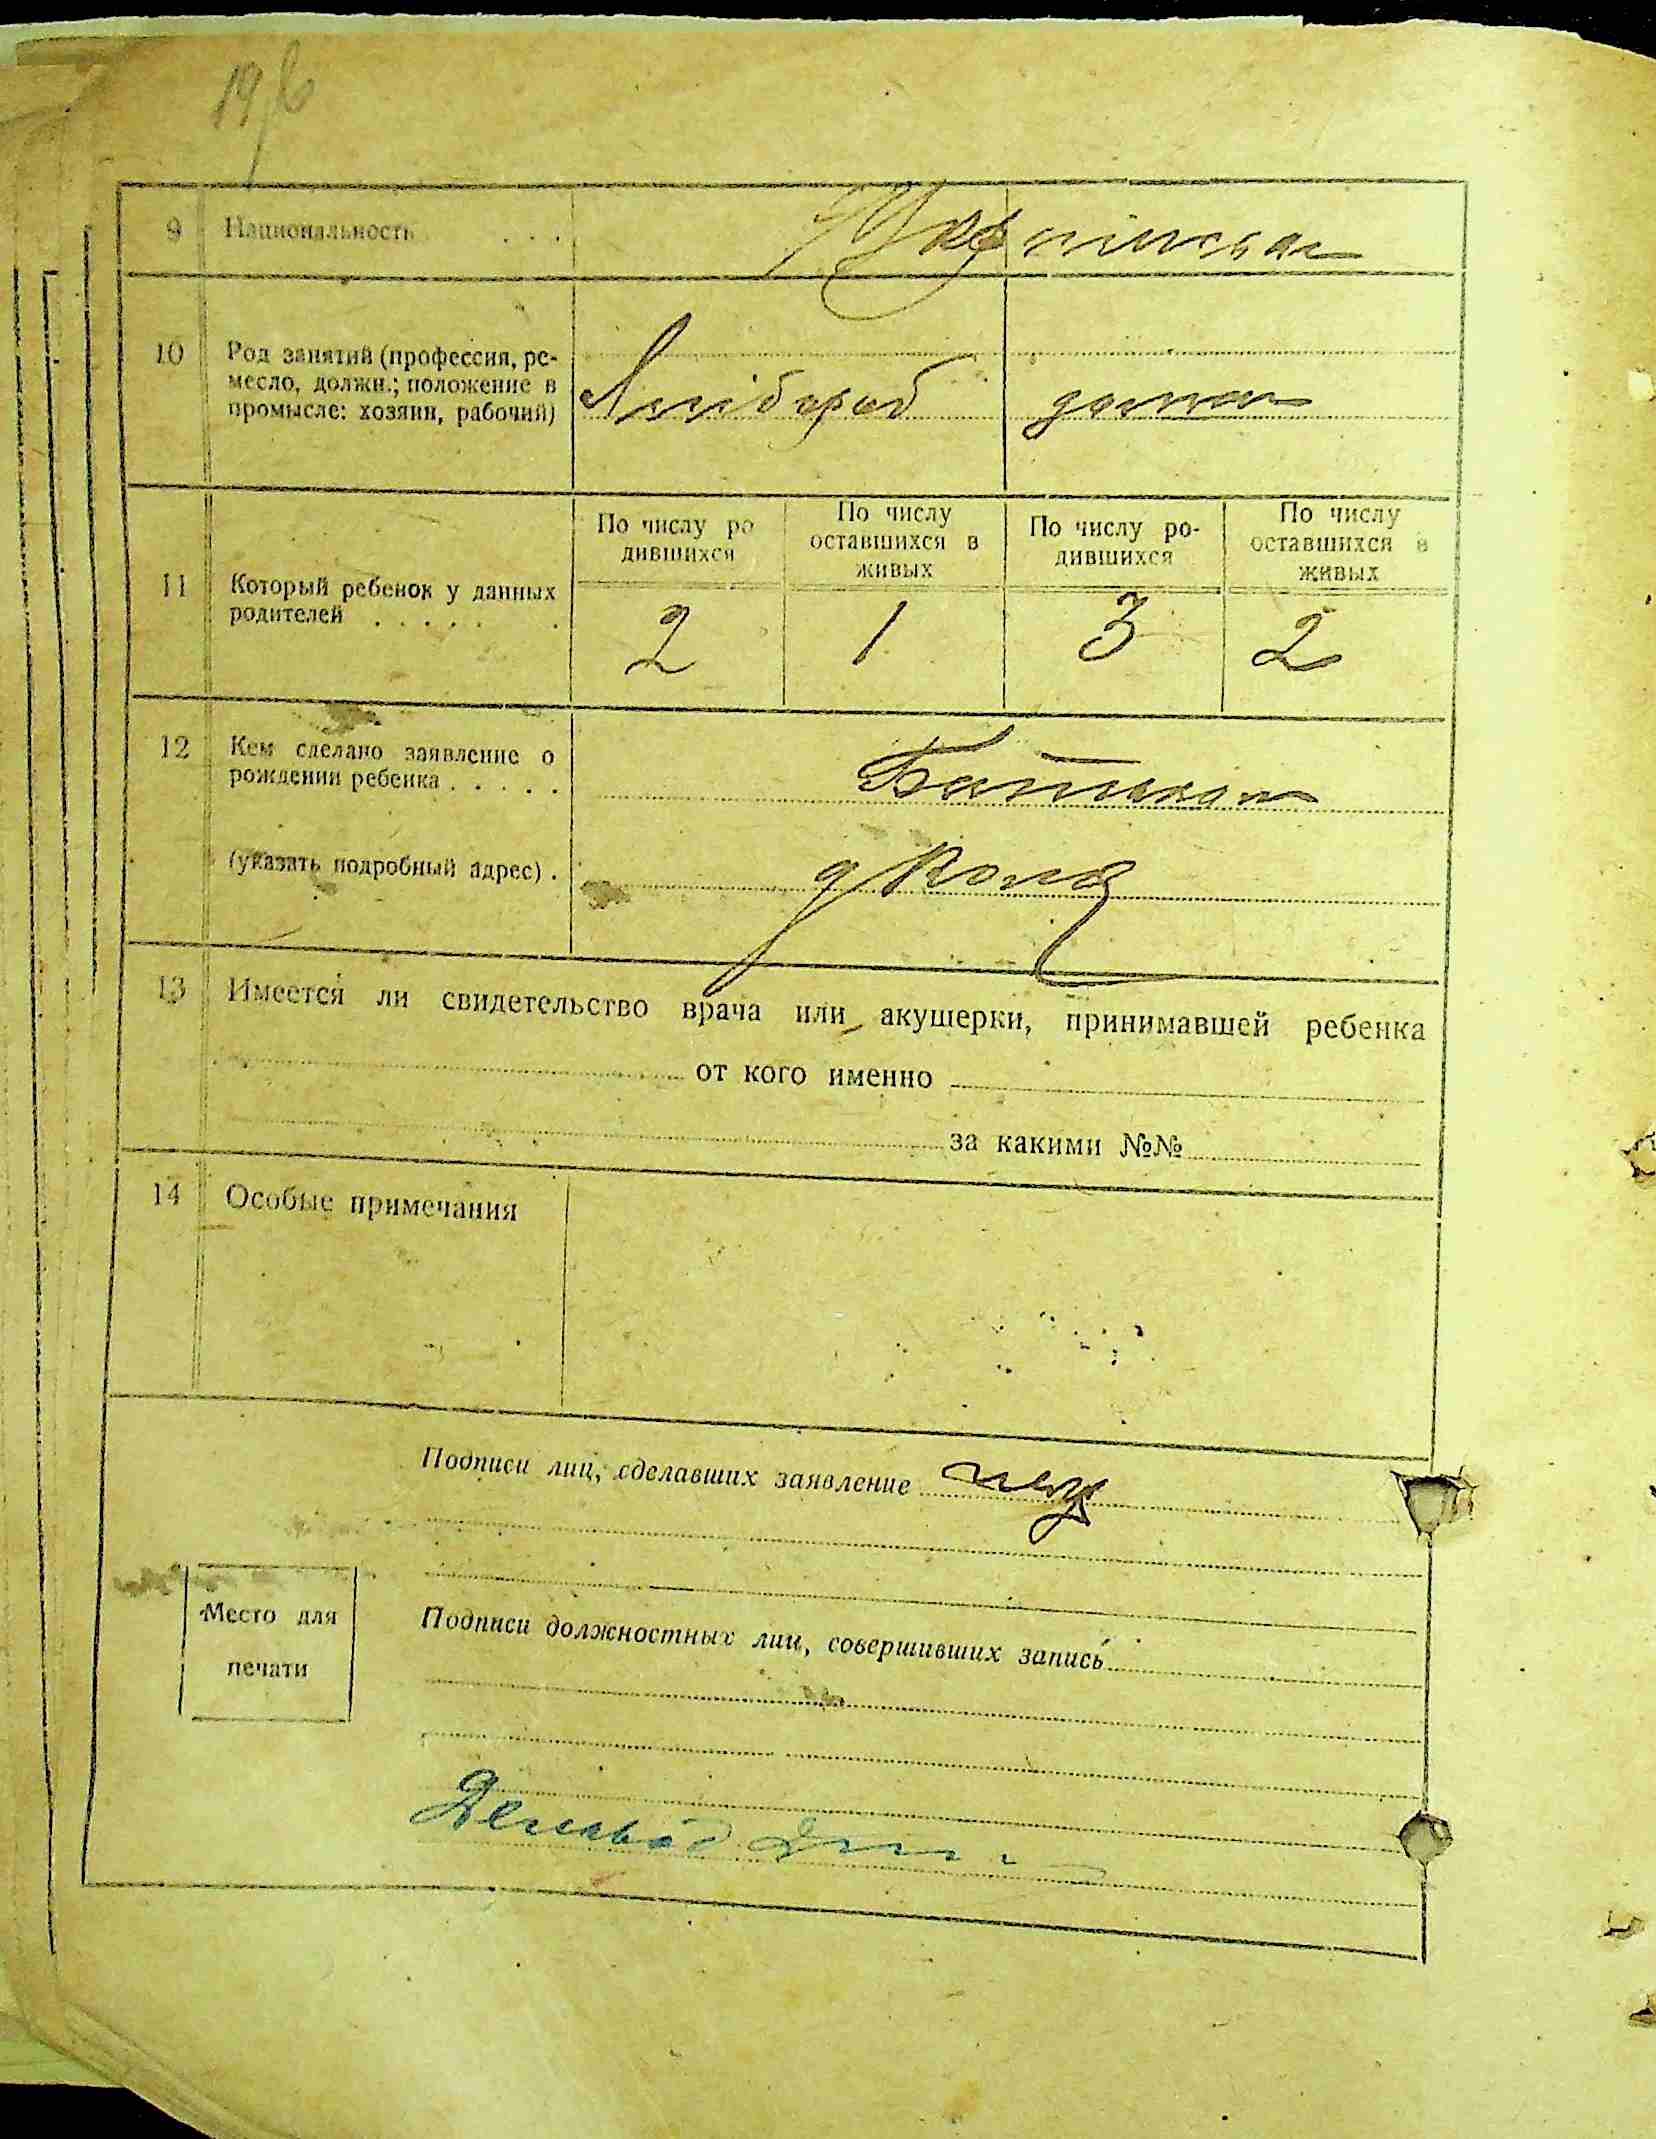 9 Национальность . . . Українська
10 Род занятий (профессия, ре-
месло, должн.; положение в
промысле: хозяин, рабочий) Хлібороб дома
11 Который ребенок у данных
родителей . . . . . .
По числу ро
дившихся
По числу
оставшихся в
живых
По числу ро-
дившихся
По числу
оставшихся в
живых
2 1 3 2
12 Кем сделано заявление о
рождении ребенка . . . . . Батьком
(указать подробный адрес) .
13 Имеется ли свидетельство врача или акушерки, принимавшей ребенка
от кого именно
за какими №№
14 Особые примечания
Подписи лиц, сделавших заявление
Место для
печати
Подписи должностных лиц, совершивших запись